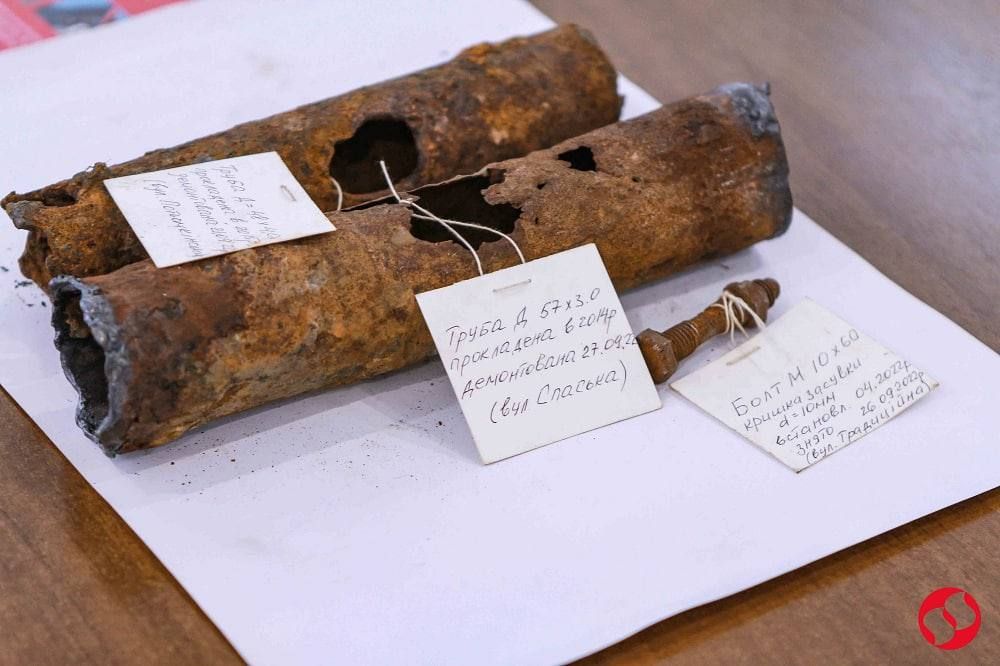 Труба d=48
прокладена в 20
демонтована
(вул.
Труба Д 57х3.0
прокладена в 2014р
демонтована 27.09.22
(вул Спаська)
Болт М 10х60
кришка засувки
d=10мм
встановл. 04.2022р
знято 26.09.2022р
(вул. Традиційна)